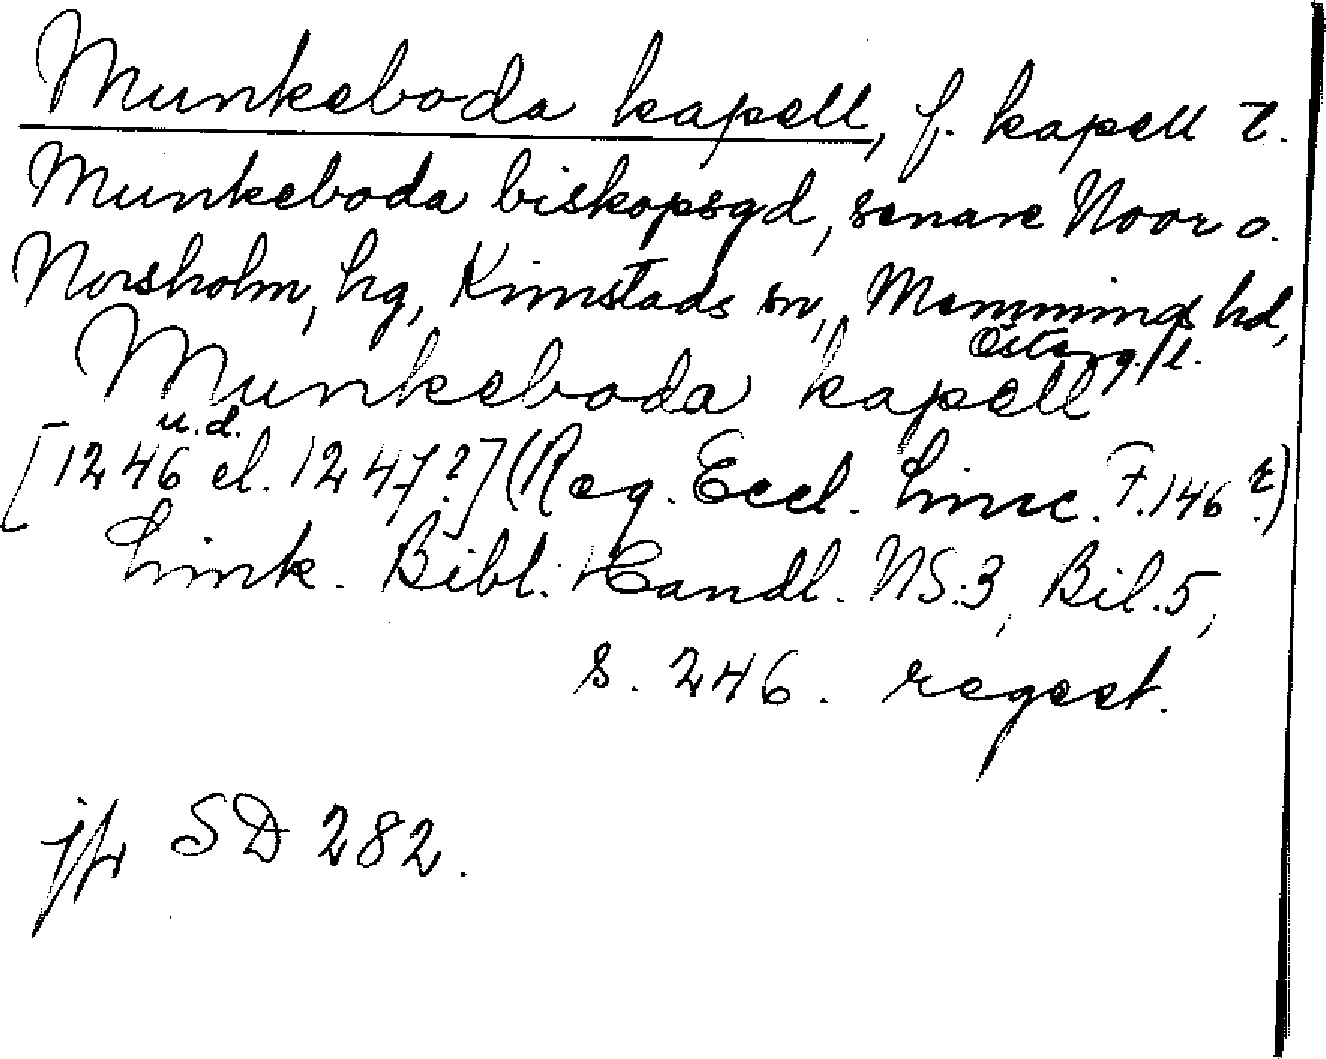 Munkeboda kapell, f. kapell t.
Munkeboda biskopsgd, senare Noor o.
Norsholm, hg, Kimstads sn, Memmings hd,
Östergötl.
Munkeboda kapell
u.d.
[1246 el. 1247?] (Reg. Eccl. Linc. F. 146 r.)
Link. Bibl. Handl. NS:3, Bil. 5,
s. 246. regest.
jfr SD 282.